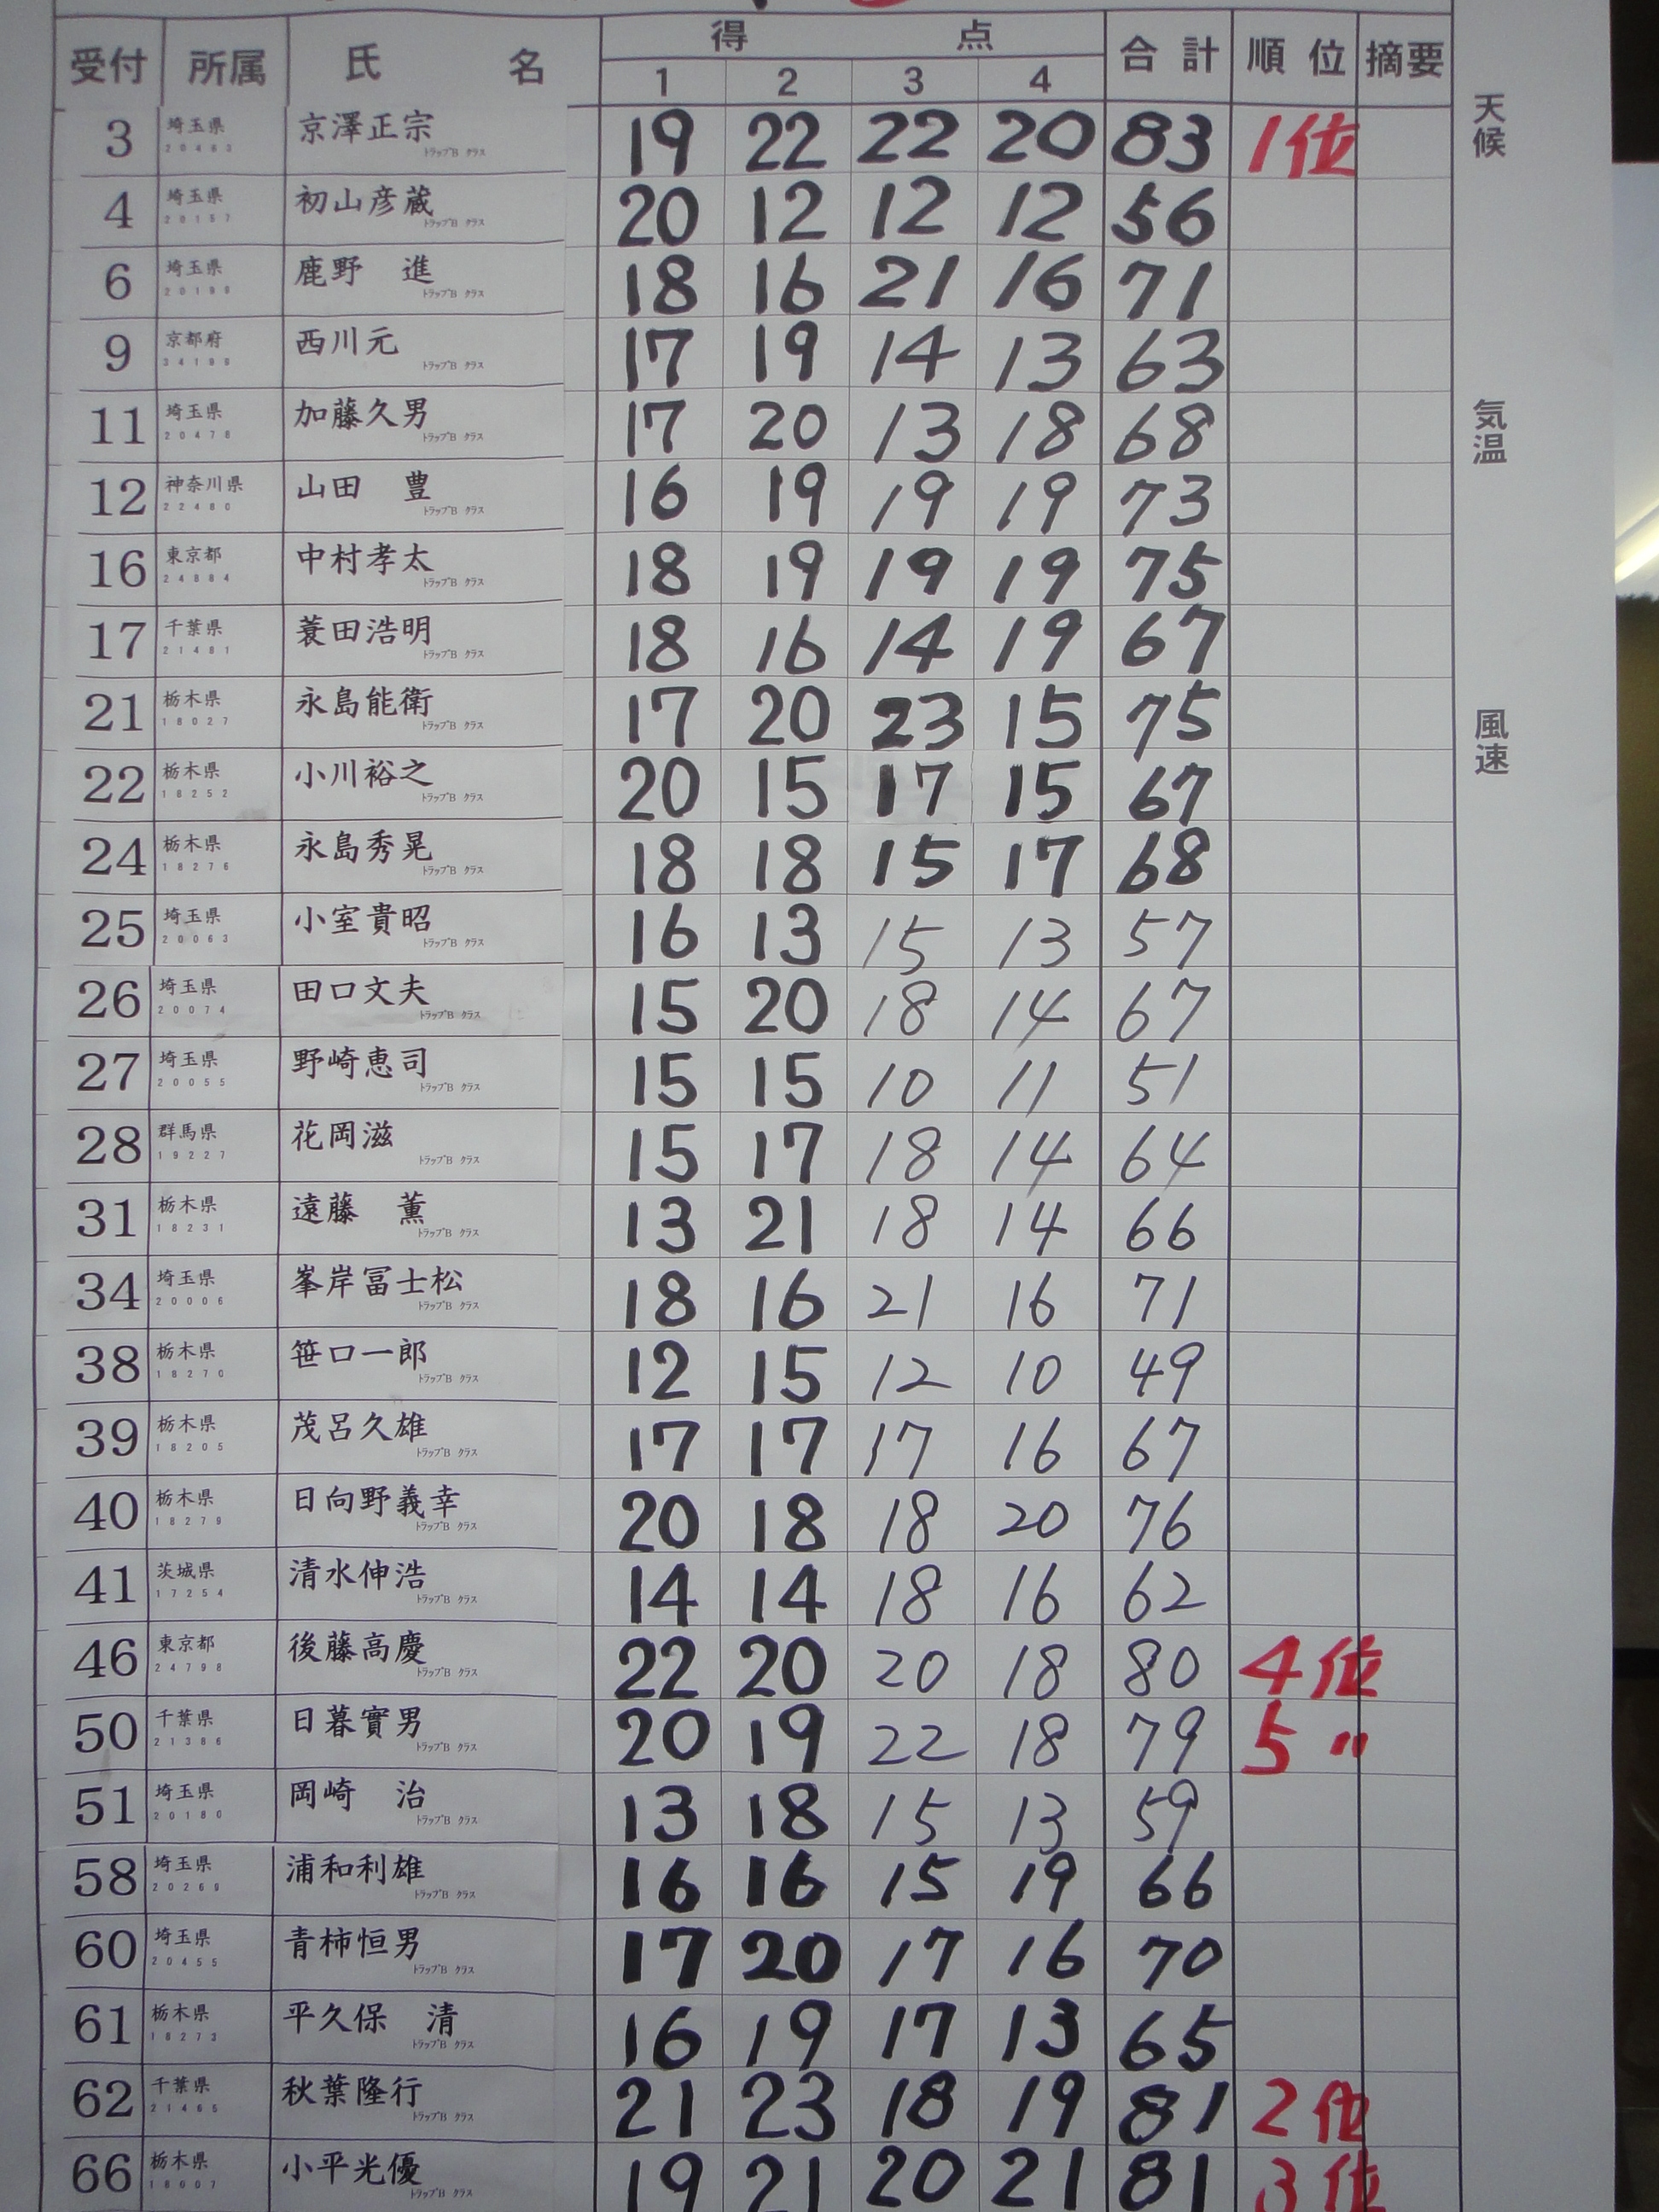 得 点
受付 所属 氏 名 1 2 3 4 合計 順位 摘要
天候
3 埼玉県 京澤正宗 19 22 22 20 83 1位
20463 トラップB クラス
4 埼玉県 初山彦蔵 20 12 12 12 56
20157 トラップB クラス
6 埼玉県 鹿野 進 18 16 21 16 71
20190 トラップB クラス
9 京都府 西川元 17 19 14 13 63
34199 トラップB クラス
気温
11 埼玉県 加藤久男 17 20 13 18 68
20478 トラップB クラス
12 神奈川県 山田 豊 16 19 19 19 73
22480 トラップB クラス
16 東京都 中村孝太 18 19 19 19 75
24884 トラップB クラス
17 千葉県 蓑田浩明 18 16 14 19 67
21481 トラップB クラス
風速
21 栃木県 永島能衛 17 20 23 15 75
18027 トラップB クラス
22 栃木県 小川裕之 20 15 17 15 67
18252 トラップB クラス
24 栃木県 永島秀晃 18 18 15 17 68
18276 トラップB クラス
25 埼玉県 小室貴昭 16 13 15 13 57
20063 トラップB クラス
26 埼玉県 田口文夫 15 20 18 14 67
20074 トラップB クラス
27 埼玉県 野崎恵司 15 15 10 11 51
20055 トラップB クラス
28 群馬県 花岡滋 15 17 18 14 64
19227 トラップB クラス
31 栃木県 遠藤 薫 13 21 18 14 66
18231 トラップB クラス
34 埼玉県 峯岸冨士松 18 16 21 16 71
20006 トラップB クラス
38 栃木県 笹口一郎 12 15 12 10 49
18270 トラップB クラス
39 栃木県 茂呂久雄 17 17 17 16 67
18205 トラップB クラス
40 栃木県 日向野義幸 20 18 18 20 76
18279 トラップB クラス
41 茨城県 清水伸浩 14 14 18 16 62
17254 トラップB クラス
46 東京都 後藤高慶 22 20 20 18 80 4位
24798 トラップB クラス
50 千葉県 日暮實男 20 19 22 18 79 5 〃
21386 トラップB クラス
51 埼玉県 岡崎 治 13 18 15 13 59
20180 トラップB クラス
58 埼玉県 浦和利雄 16 16 15 19 66
20269 トラップB クラス
60 埼玉県 青柿恒男 17 20 17 16 70
20455 トラップB クラス
61 栃木県 平久保 清 16 19 17 13 65
18273 トラップB クラス
62 千葉県 秋葉隆行 21 23 18 19 81 2位
21465 トラップB クラス
66 栃木県 小平光優 19 21 20 21 81 3位
18007 トラップB クラス